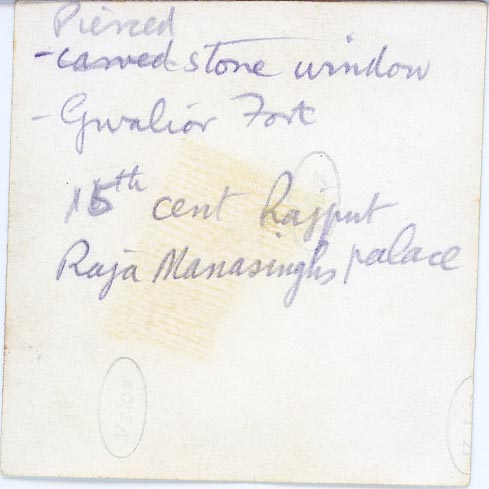 Pierced
- carved stone window
- Gwalior Fort
15th cent Rajput
Raja Manasinghs palace
Velox